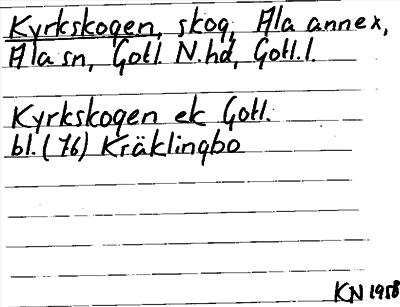 Kyrkskogen, skog, Ala annex,
Ala sn, Gotl. N. hd, Gotl. l.
Kyrkskogen ek Gotl.
bl. (76) Kräklingbo
KN 1958